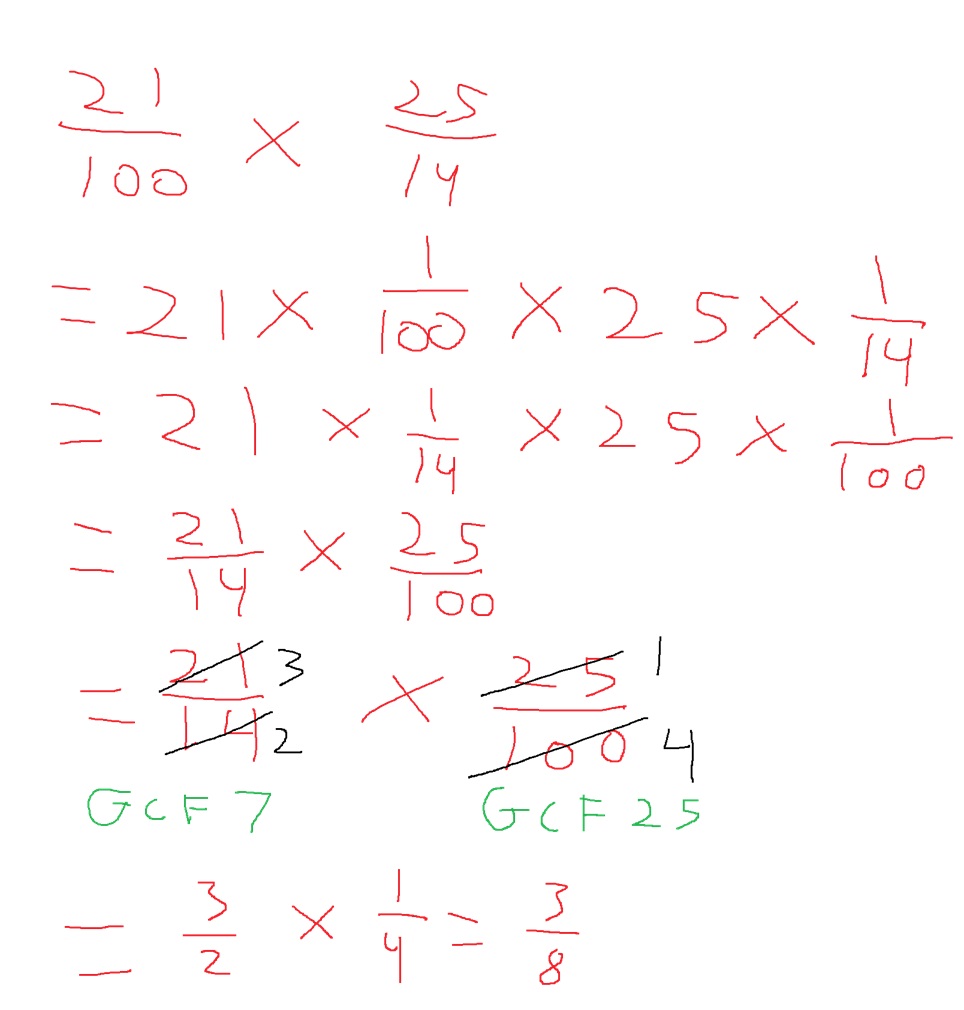 21/100 × 25/14
= 21 × 1/100 × 25 × 1/14
= 21 × 1/14 × 25 × 1/100
= 21/14 × 25/100
= 21/14 3/2 × 25/100 1/4
GCF 7 GCF 25
= 3/2 × 1/4 = 3/8